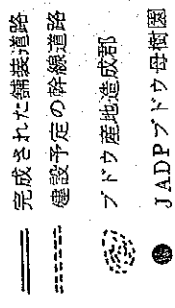 完成された舗装道路
建設予定の幹線道路
ブドウ産地造成郡
JADPブドウ母樹園